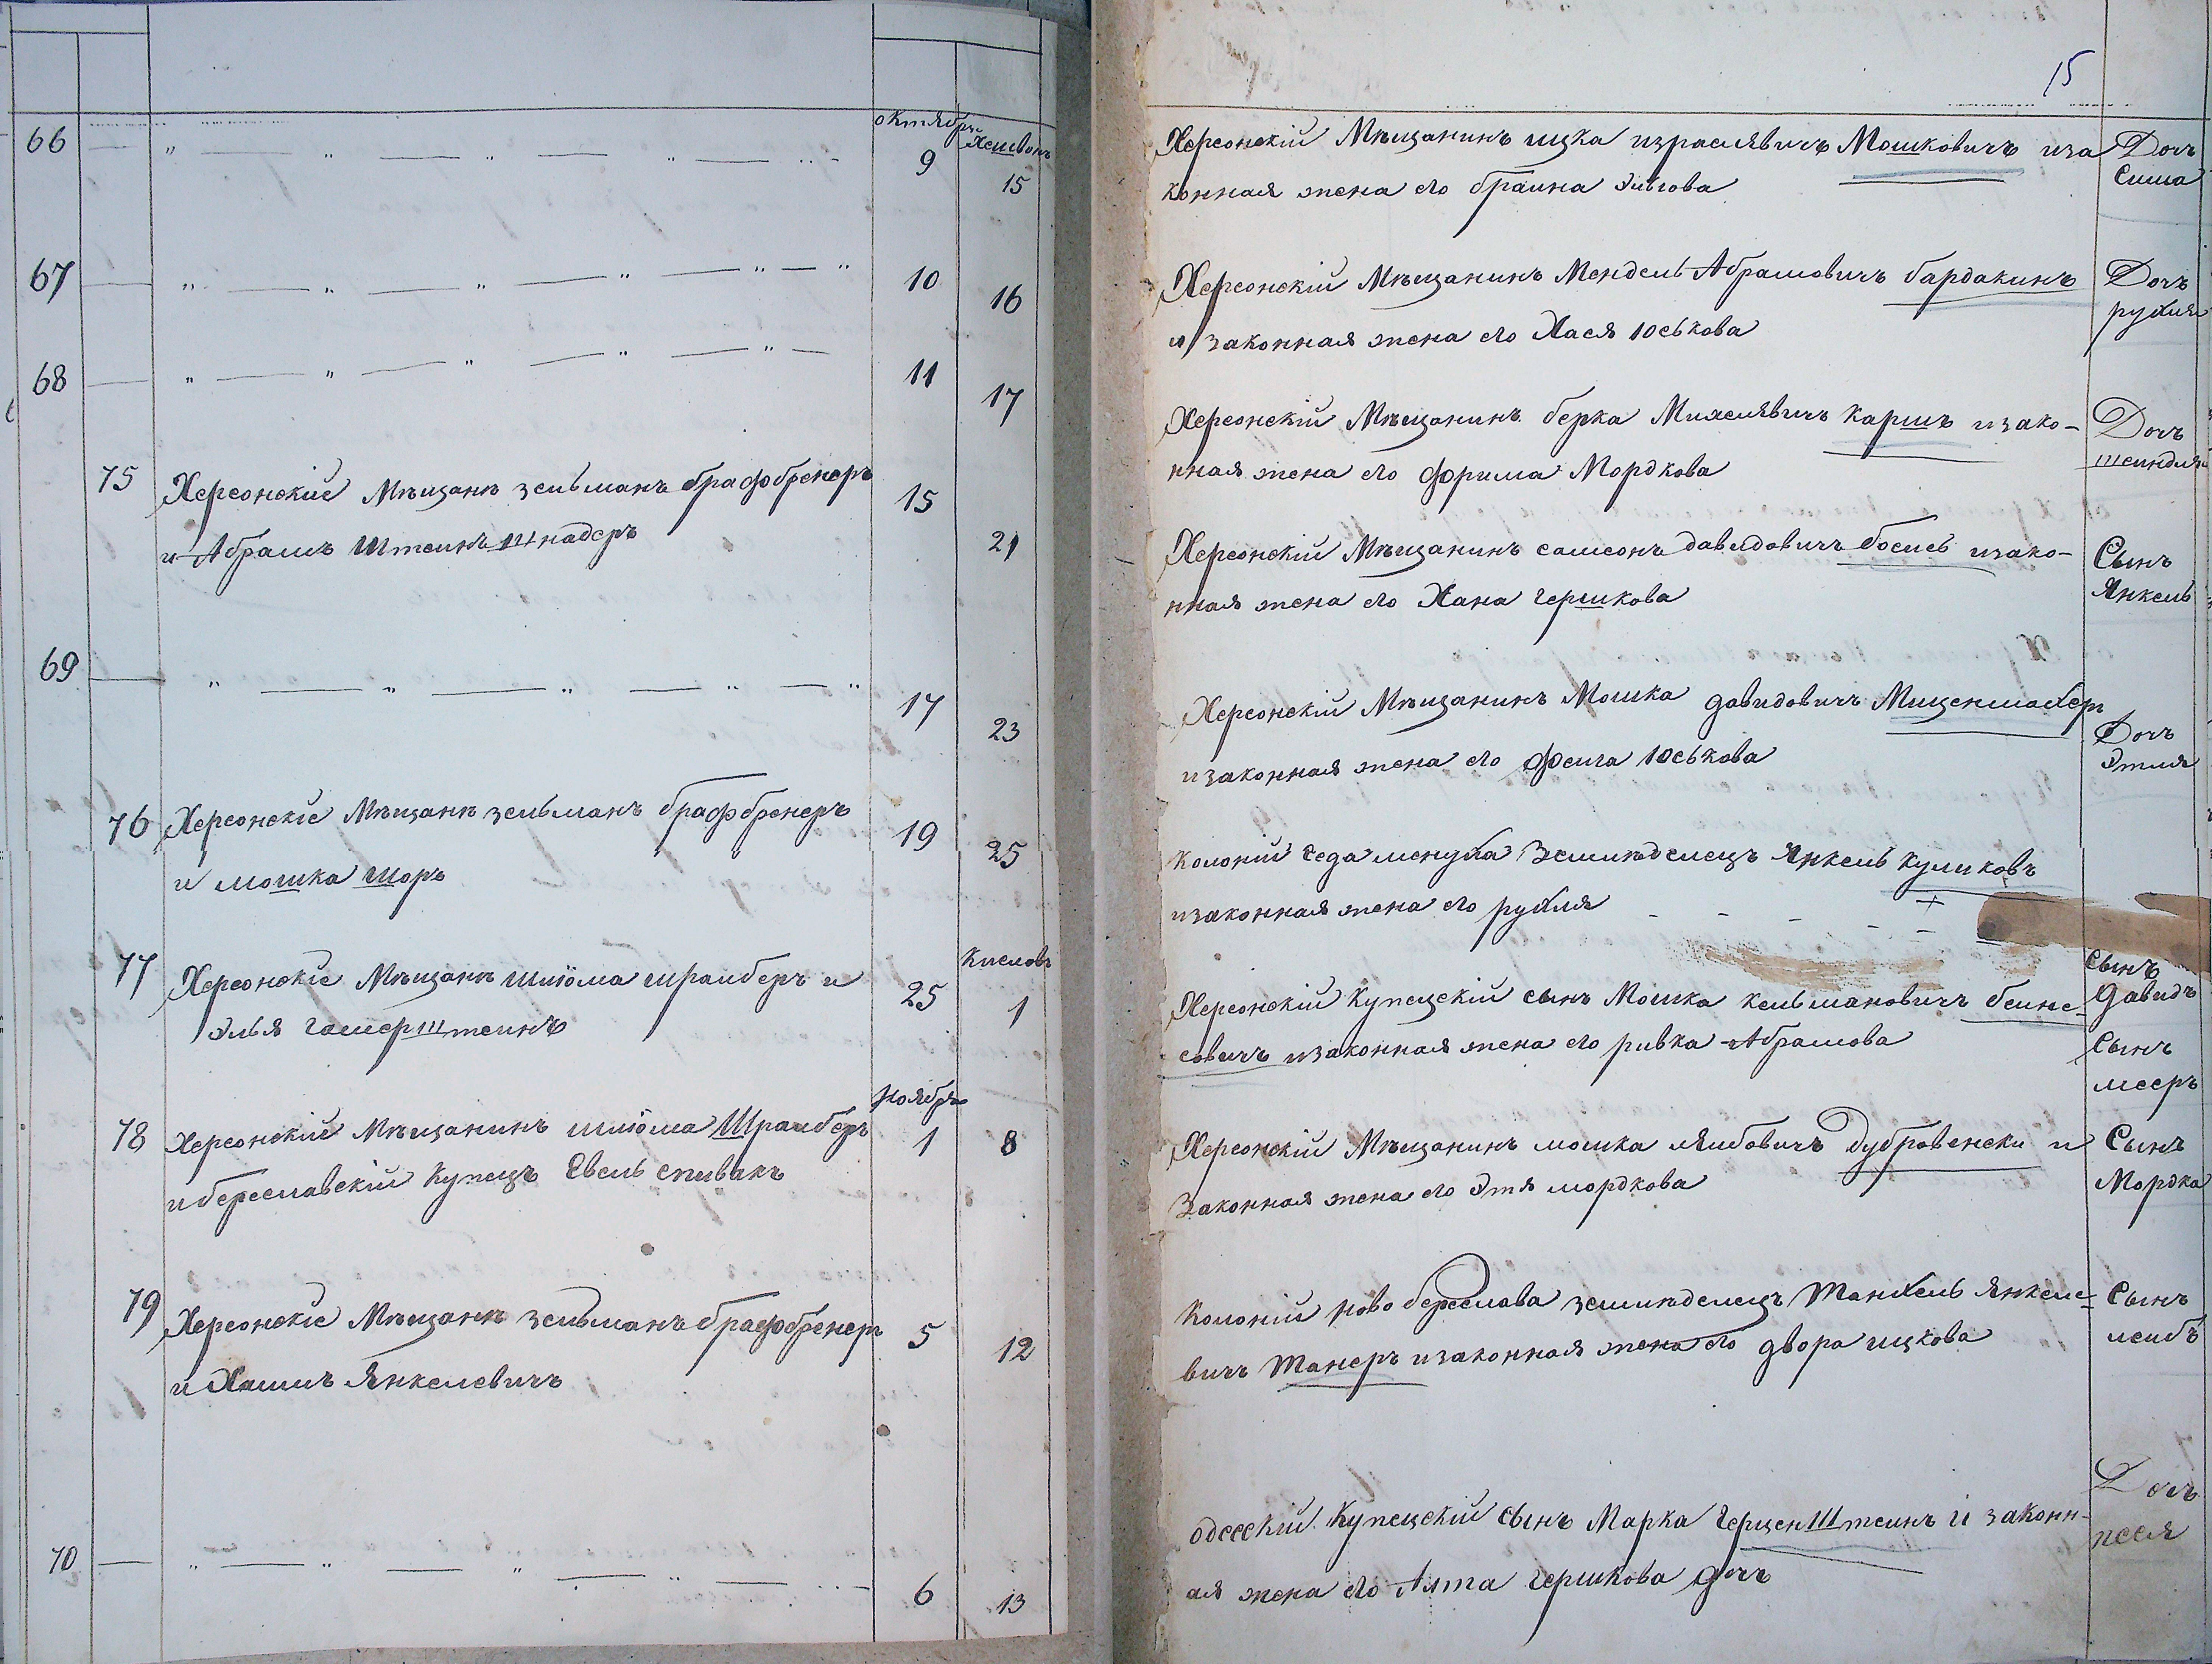 октябрь
Хешвонъ
66
9
15
67
10
16
68
11
17
75
Херсонскіе Мѣщанѣ зельманъ брафобренеръ
и Абрамъ Штеинъ Шнадеръ
15
21
69
17
23
76
Херсонскіе Мѣщанѣ зельманъ брафбренеръ
и мошка шоръ
19
25
77
Херсонскіе Мѣщанѣ шліома шрамберъ и
элья гамерштеинъ
25
Кисловъ
1
ноябрь
78
Херсонскій Мѣщанинъ шліома Шрамберъ
и береславскій Купецъ Евель спивакъ
1
8
79
Херсонскіе Мѣщанѣ зельманъ брафобренеръ
и Хаимъ Янкелевичъ
5
12
70
6
13
15
Херсонскій Мѣщанинъ ицка израилявичъ Мошковичъ иза
конная жена его браина Элигова
Дочь
сима
Херсонскій Мѣщанинъ Мендель Абрамовичъ бардакинъ
и законная жена его Хася юськова
Дочь
рухля
Херсонскій Мѣщанинъ берка Михелявичъ каршъ изако-
нная жена его фрима Мордкова
Дочь
шеиндля
Херсонскій Мѣщанинъ самсонъ давидовичъ босисъ изако-
нная жена его Хана гершкова
Сынъ
Янкель
Херсонскій Мѣщанинъ Мошка давидовичъ Мищенмахеръ
изаконная жена его феига юськова
Дочь
Этля
колоніи седа менуха Землѣделецъ Янкель куликовъ
изаконная жена его рухля
сынъ
давидъ
Херсонскій Купецскій сынъ Мошка кельмановичъ беине-
совичъ изаконная жена его ривка Абрамова
Сынъ
мееръ
Херсонскій Мѣщанинъ мошка лямбовичъ дубровенски и
Законная жена его Этя мордкова
Сынъ
Мордка
Колоніи ново береслова землѣделецъ Танхель Янкеле-
вичъ Танеръ изаконная жена его двора ицкова
Сынъ
леибъ
одесскій Купецскій сынъ Марка Герценштеинъ и законн-
ая жена его Алта гершкова дочь
Дочь
песя